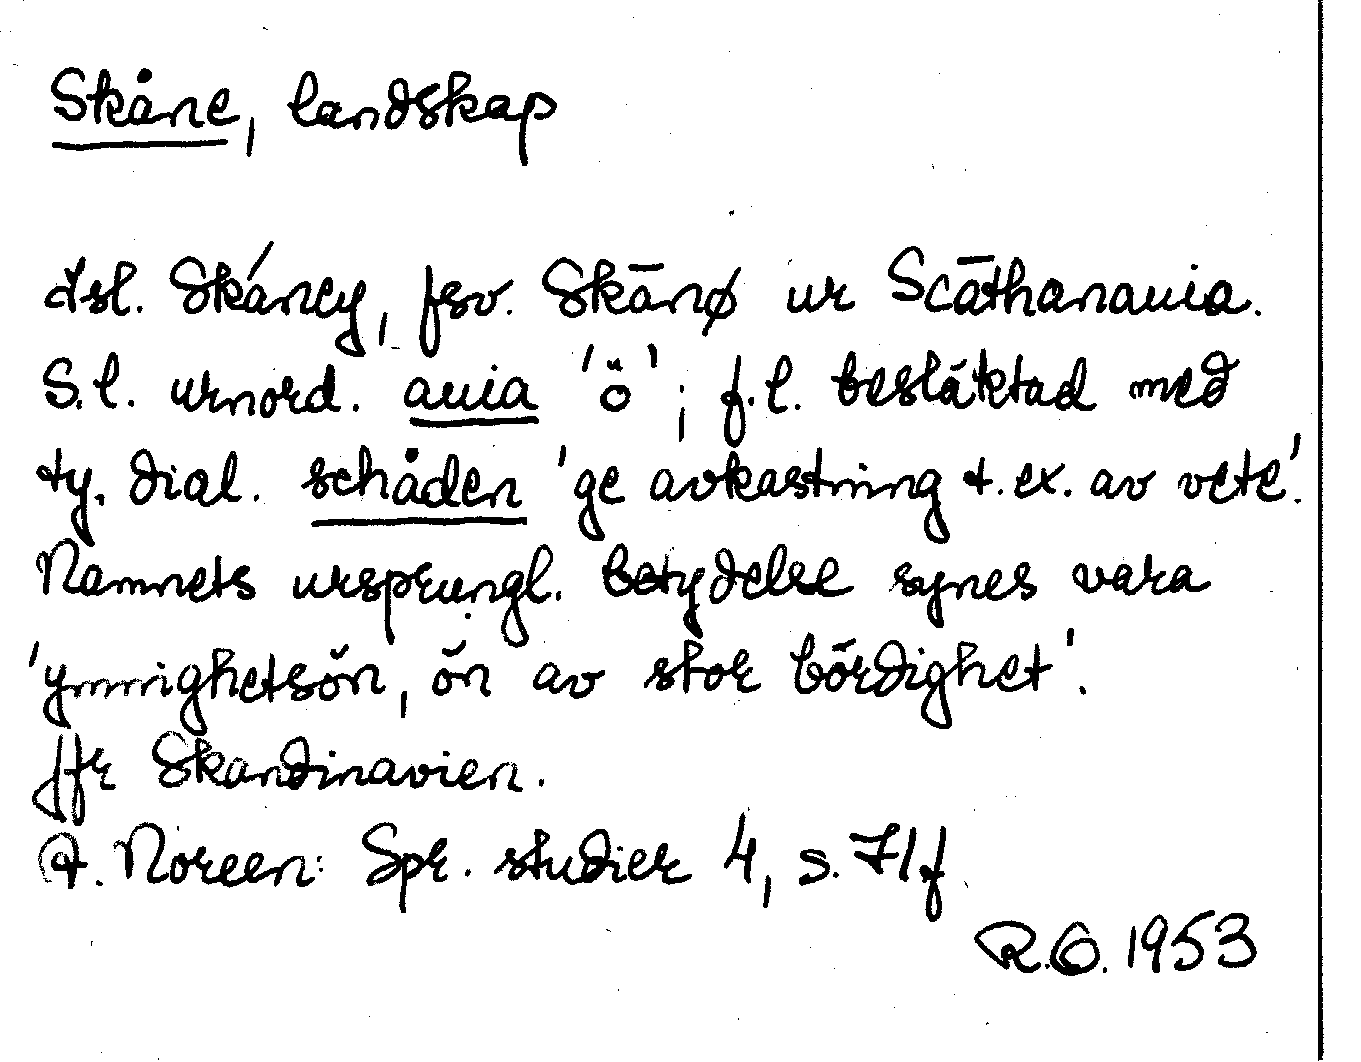 Skåne, landskap
Isl. Skáney, fsv. Skānø ur Scāthanauia.
S.l. urnord. auia 'ö'; f.l. besläktad med
ty. dial. schåden 'ge avkastning t. ex. av vete'.
Namnets ursprungl. betydelse synes vara
'ymnighetsön, ön av stor bördighet'.
Jfr Skandinavien.
A. Noreen: Spr. studier 4, s. 71f
R.O. 1953